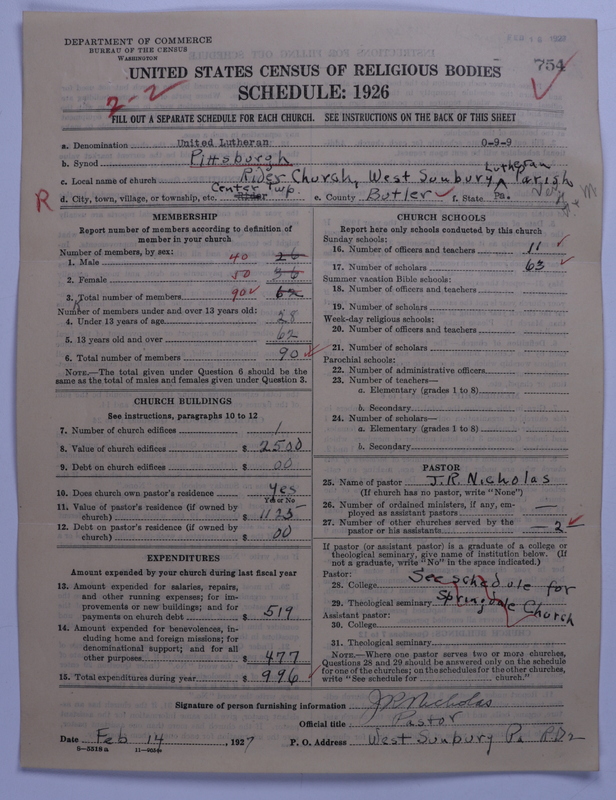 DEPARTMENT OF COMMERCE
BUREAU OF THE CENSUS
WASHINGTON
UNITED STATES CENSUS OF RELIGIOUS BODIES
754
SCHEDULE: 1926
2-2
FILL OUT A SEPARATE SCHEDULE FOR EACH CHURCH. SEE INSTRUCTIONS ON THE BACK OF THIS SHEET
a. Denomination United Lutheran 0-9-9
b. Synod Pittsburgh
c. Local name of church Rider Church, West Sunbury Lutheran Parish
R d. City, town, village, or township, etc. Center Twp e. County Butler f. State Pa.
MEMBERSHIP
Report number of members according to definition of
member in your church
Number of members, by sex:
1. Male 40 26
2. Female 50 36
3. Total number of members 90 62
Number of members under and over 13 years old:
4. Under 13 years of age 28
5. 13 years old and over 62
6. Total number of members 90
NOTE.—The total given under Question 6 should be
same as the total of males and females given under Question 3.
CHURCH BUILDINGS
See instructions, paragraphs 10 to 12
7. Number of church edifices 1
8. Value of church edifices $ 2500
9. Debt on church edifices $ 00
10. Does church own pastor's residence Yes
Yes or No
11. Value of pastor's residence (if owned by
church) $ 1125
12. Debt on pastor's residence (if owned by
church) $ 00
EXPENDITURES
Amount expended by your church during last fiscal year
13. Amount expended for salaries, repairs,
and other running expenses; for im-
provements or new buildings; and for
payments on church debt $ 519
14. Amount expended for benevolences, in-
cluding home and foreign missions; for
denominational support; and for all
other purposes $ 477
15. Total expenditures during year $ 996
CHURCH SCHOOLS
Report here only schools conducted by this church
Sunday schools:
16. Number of officers and teachers 11
17. Number of scholars 63
Summer vacation Bible schools:
18. Number of officers and teachers
19. Number of scholars
Week-day religious schools:
20. Number of officers and teachers
21. Number of scholars
Parochial schools:
22. Number of administrative officers
23. Number of teachers—
a. Elementary (grades 1 to 8)
b. Secondary
24. Number of scholars—
a. Elementary (grades 1 to 8)
b. Secondary
PASTOR
25. Name of pastor J. R. Nicholas
(If church has no pastor, write "None")
26. Number of ordained ministers, if any, em-
ployed as assistant pastors —
27. Number of other churches served by the
pastor or his assistants 2
If pastor (or assistant pastor) is a graduate of a college or
theological seminary, give name of institution below. (If
not a graduate, write "No" in the space indicated.)
Pastor:
28. College See schedule for
29. Theological seminary Springdale Church
Assistant pastor:
30. College
31. Theological seminary
NOTE.—Where one pastor serves two or more churches,
Questions 28 and 29 should be answered only on the schedule
for one of the churches; on the schedules for the other churches,
write "See schedule for ________ church."
Signature of person furnishing information J R Nicholas
Official title Pastor
Date Feb 14, 1927 P. O. Address West Sunbury Pa R.D. 2
8—5518 a